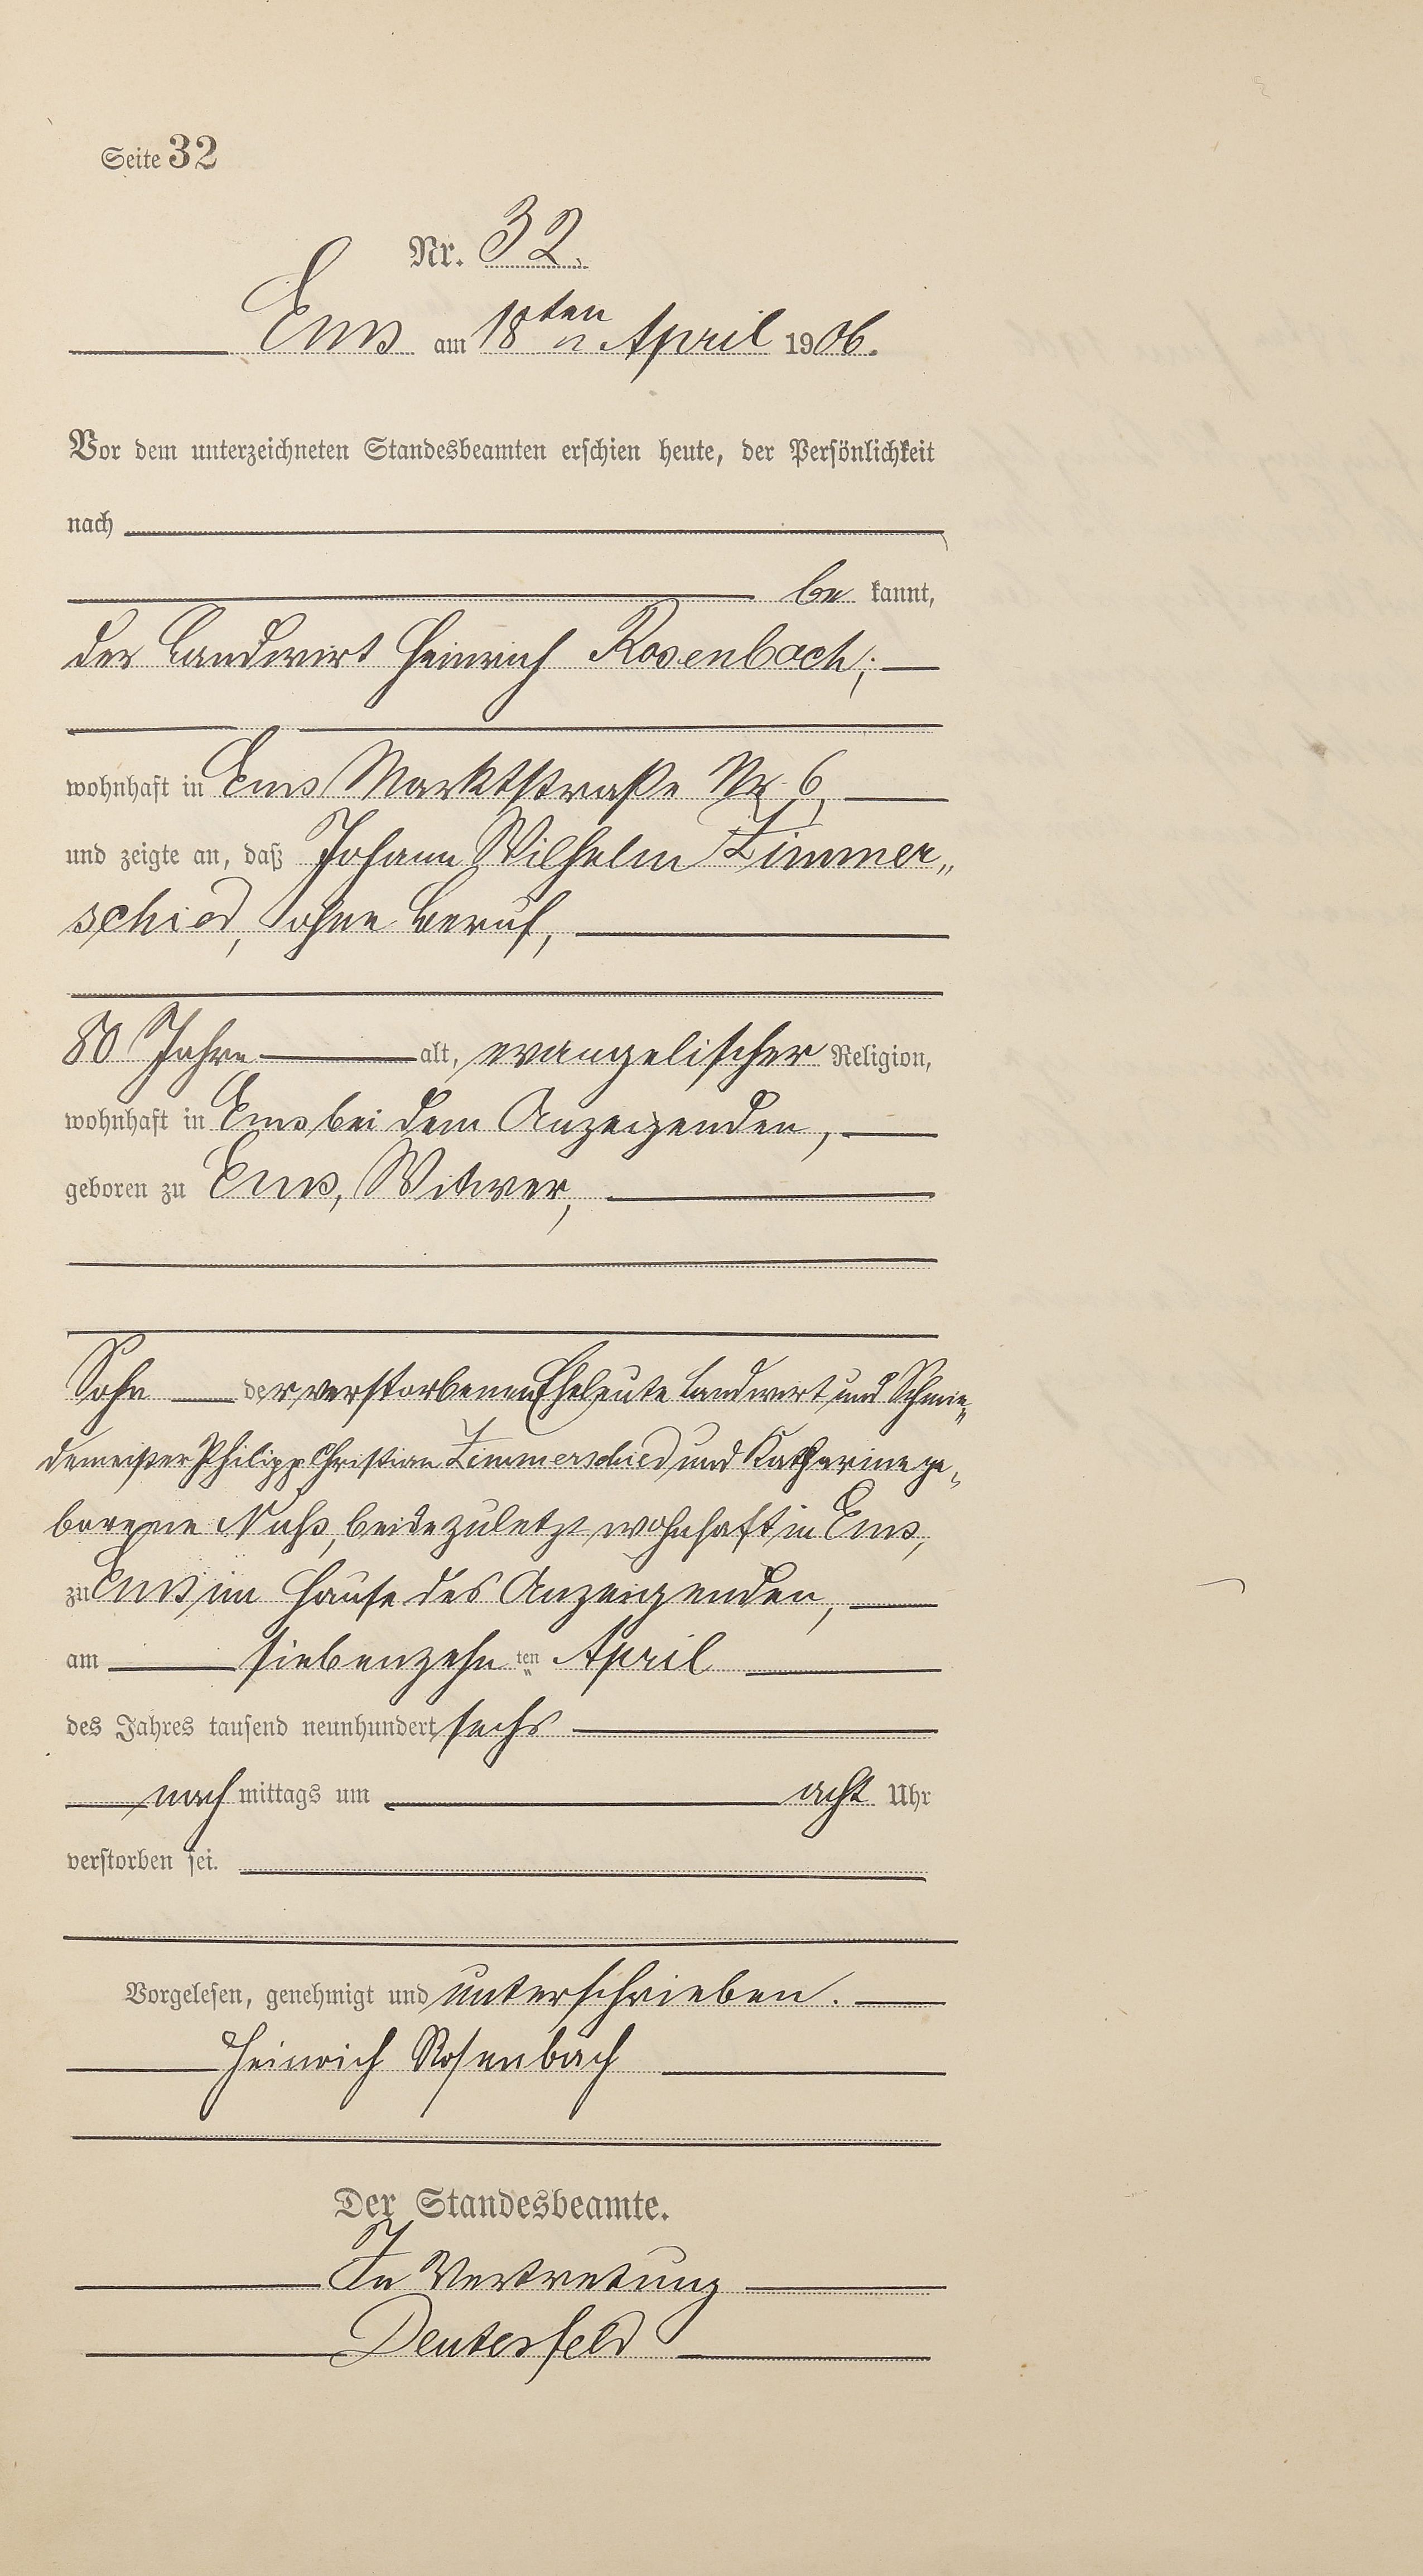 Seite 32
Nr. 32.
Ems am 18ten April 1906.
Vor dem unterzeichneten Standesbeamten erschien heute, der Persönlichkeit
nach
be kannt,
der Landwirt Heinrich Rosenbach,
wohnhaft in Ems Marktstraße Nr. 6,
und zeigte an, daß Johann Wilhelm Zimmer„
schied, ohne Beruf,
80 Jahre alt, evangelischer Religion,
wohnhaft in Ems bei dem Anzeigenden,
geboren zu Ems, Witwer,
Sohn der verstorbenen Eheleute Landwirt und Schmie„
demeister Philipp Christian Zimmerschied und Katharine ge„
borene Nuß, beide zuletzt wohnhaft in Ems,
zu Ems im Hause des Anzeigenden,
am siebenzehn ten April
des Jahres tausend neunhundert sechs
nach mittags um acht Uhr
verstorben sei.
Vorgelesen, genehmigt und unterschrieben.
Heinrich Rosenbach
Der Standesbeamte.
In Vertretung
Deutesfeld